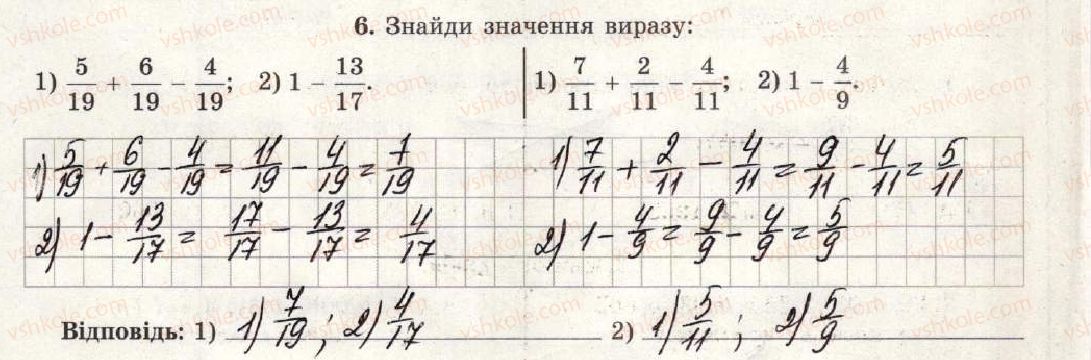 6. Знайди значення виразу:
1) 5/19 + 6/19 − 4/19; 2) 1 − 13/17.
1) 7/11 + 2/11 − 4/11; 2) 1 − 4/9.
1) 5/19 + 6/19 − 4/19 = 11/19 − 4/19 = 7/19
1) 7/11 + 2/11 − 4/11 = 9/11 − 4/11 = 5/11
2) 1 − 13/17 = 17/17 − 13/17 = 4/17
2) 1 − 4/9 = 9/9 − 4/9 = 5/9
Відповідь: 1) 1) 7/19; 2) 4/17 2) 1) 5/11; 2) 5/9